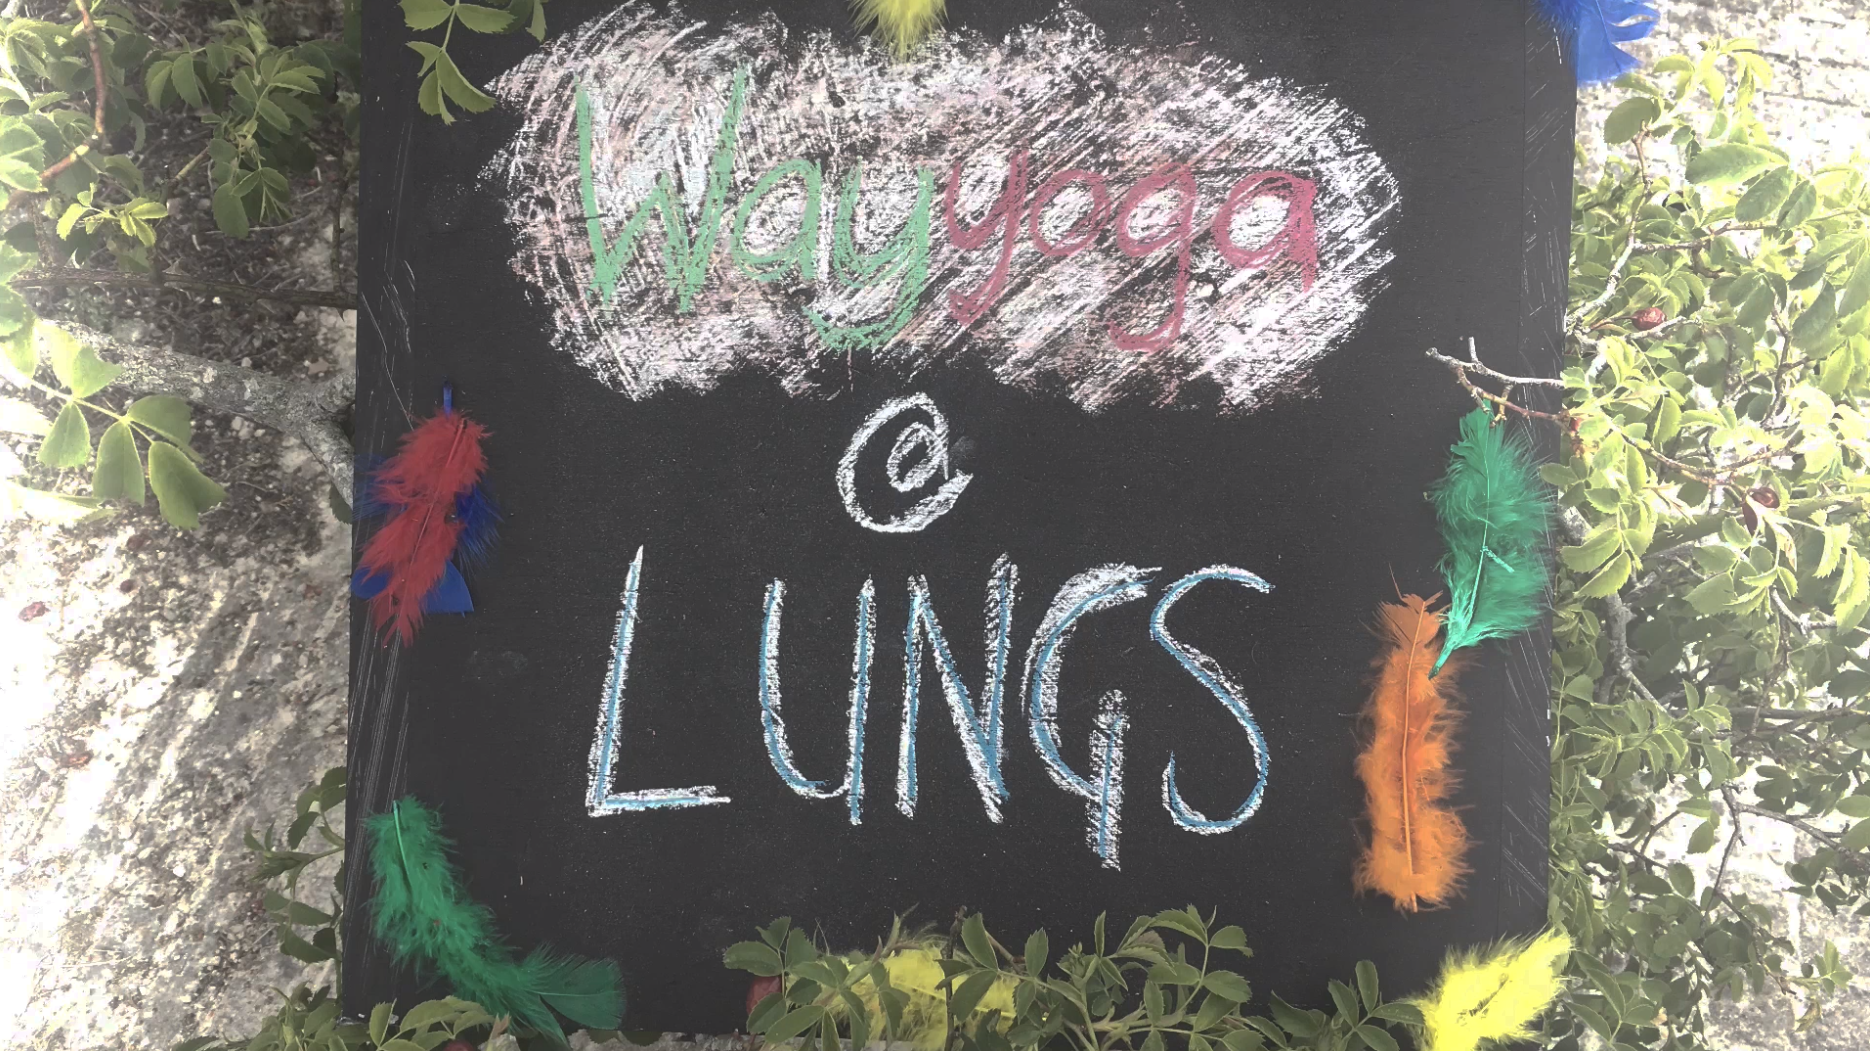 Wayyoga
@
LUNGS